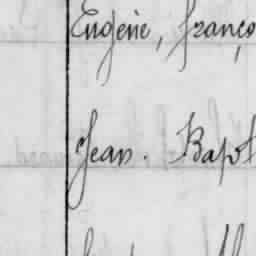 Eugène, franço
Jean. Bapt